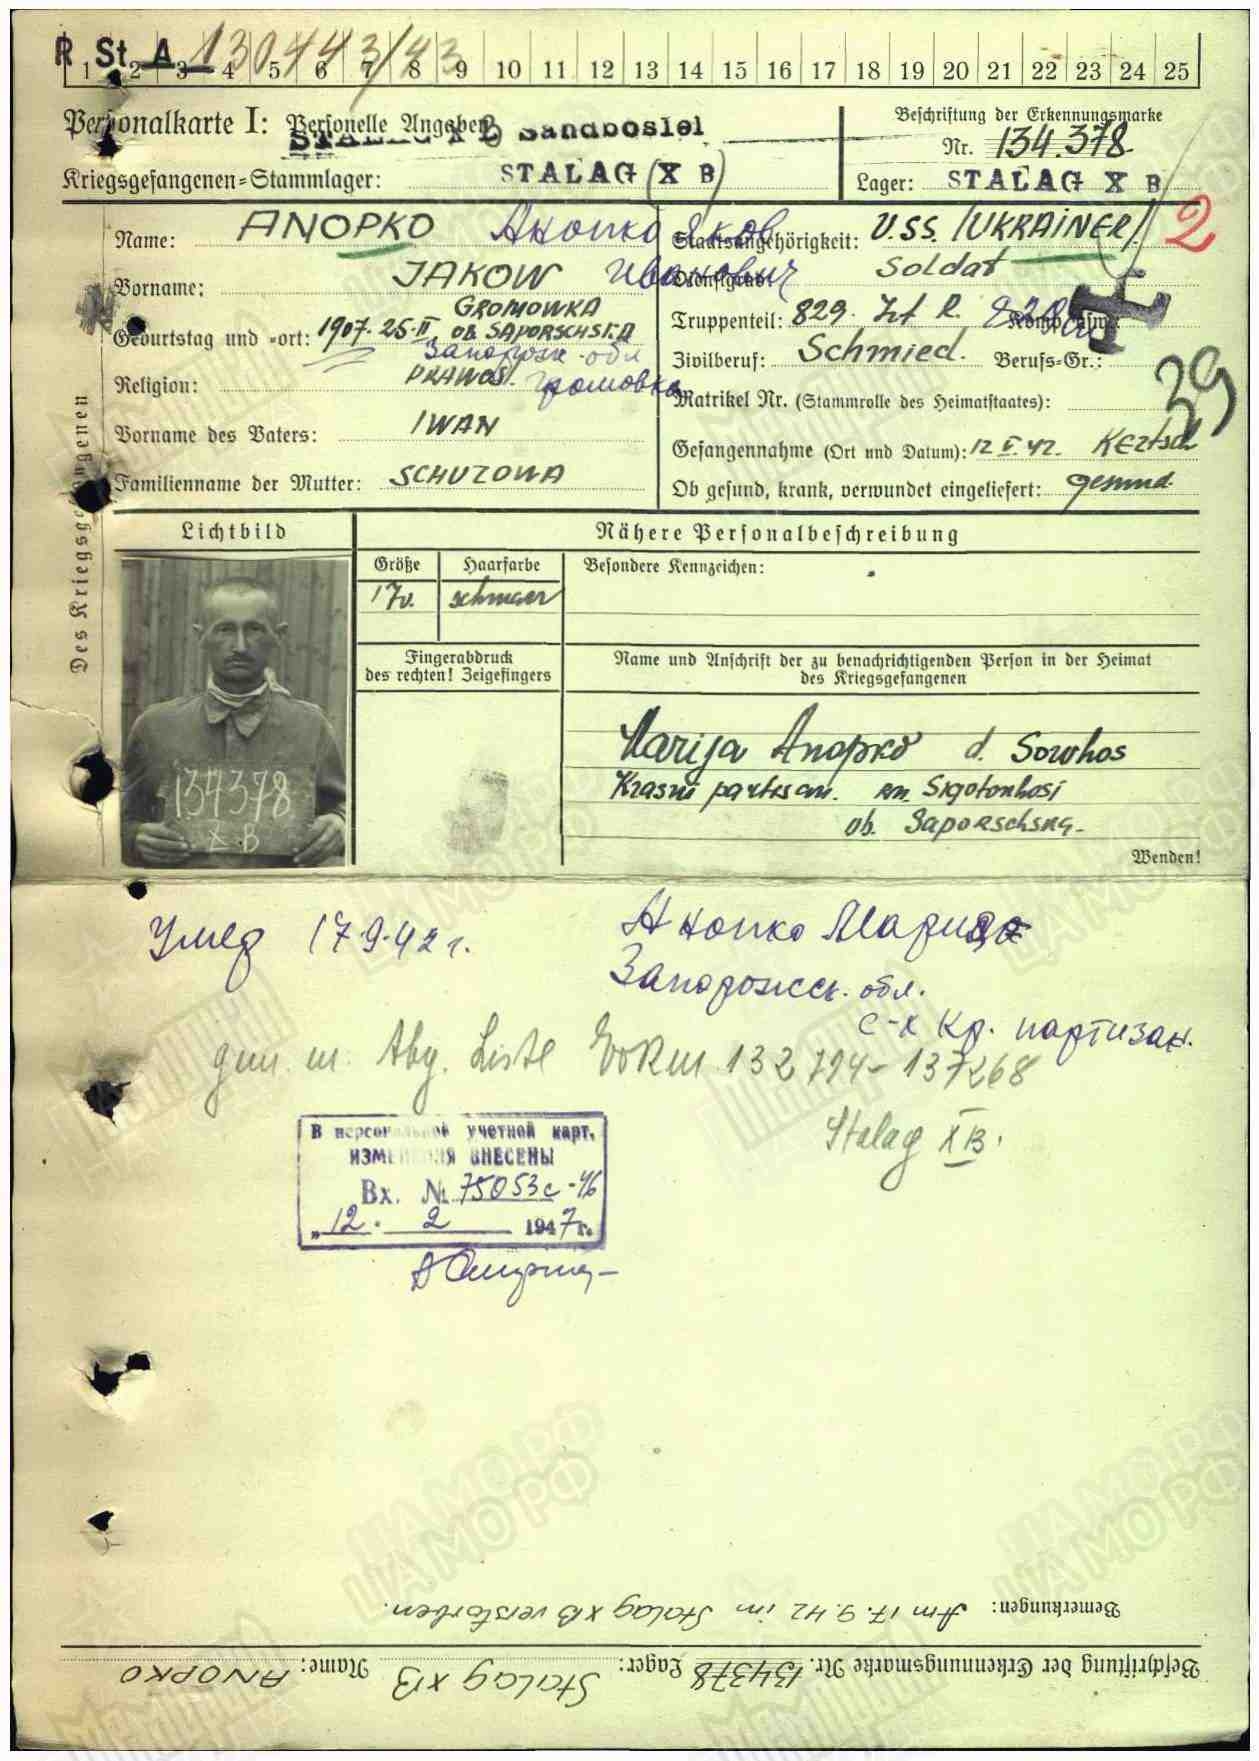 R St A 130443/43
1 2 3 4 5 6 7 8 9 10 11 12 13 14 15 16 17 18 19 20 21 22 23 24 25
Personalkarte I: Personelle Angaben
STALAG X B Sandbostel
Kriegsgefangenen-Stammlager: STALAG (X B)
Beschriftung der Erkennungsmarke
Nr. 134.378
Lager: STALAG X B
2
Des Kriegsgefangenen
Name: ANOPKO Анопко Яков
Vorname: JAKOW Иванович
GROMOWKA
Geburtstag und -ort: 1907.25.II. ob. SAPORSCHSKA
Запорожс. обл
Religion: PRAWOS. Громовка
Vorname des Vaters: IWAN
Familienname der Mutter: SCHUZOWA
Staatsangehörigkeit: U.SS. /UKRAINER/
Dienstgrad: Soldat
Truppenteil: 829. Inf R. Komp. usw.:
Zivilberuf: Schmied. Berufs-Gr.:
39
Matrikel Nr. (Stammrolle des Heimatstaates):
Gefangennahme (Ort und Datum): 12 V. 42. Kertsch
Ob gesund, krank, verwundet eingeliefert: gesund.
Lichtbild
134378
X B
Nähere Personalbeschreibung
Größe Haarfarbe Besondere Kennzeichen:
170. schwarz
Fingerabdruck
des rechten! Zeigefingers
Name und Anschrift der zu benachrichtigenden Person in der Heimat
des Kriegsgefangenen
Marija Anopko d. Sowhos
Krasni partisan.
ob. Saporschska-
Wenden!
Умер 17.9.42 г.
Анопко Мария
Запорожск. обл.
с-х Кр. партизан.
gem. m. Abg. Liste 132794-137268
Stalag XB.
В персональной учетной карт.
ИЗМЕНЕНИЯ ВНЕСЕНЫ
Вх. № 75053с-46
„12. 2 1947г.
Bemerkungen: Am 17.9.42 im Stalag XB verstorben.
Beschriftung der Erkennungsmarke Nr. 134378 Lager: Stalag XB Name: ANOPKO